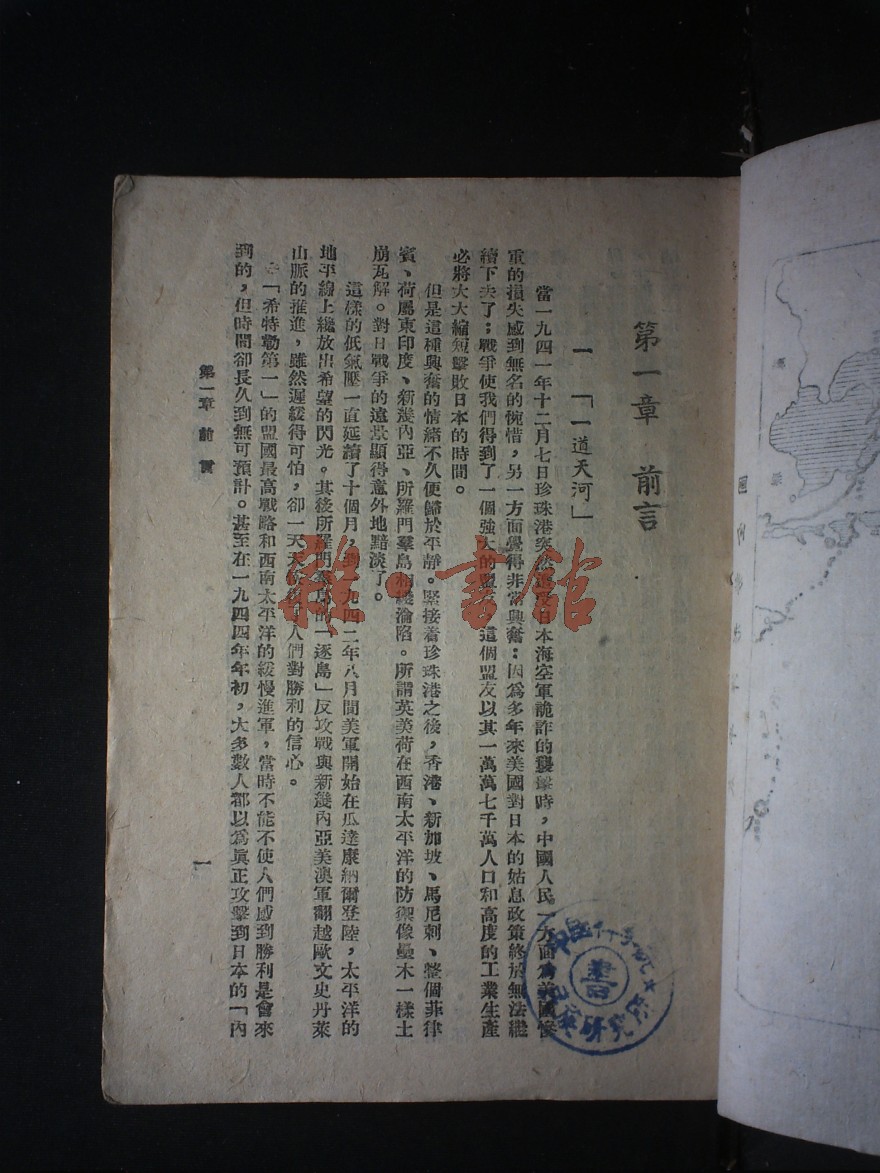 第一章 前言
一 「一道天河」
當一九四一年十二月七日珍珠港突然遭受日本海空軍詭詐的襲擊時，中國人民一方面爲美國慘
重的損失感到無名的惋惜，另一方面覺得非常興奮：因爲多年來美國對日本的姑息政策終於無法繼
續下去了；戰爭使我們得到了一個強大的盟友，這個盟友以其一萬萬七千萬人口和高度的工業生產
必將大大縮短擊敗日本的時間。
但是這種興奮的情緒不久便歸於平靜。緊接着珍珠港之後，香港、新加坡、馬尼剌、整個菲律
賓、荷屬東印度、新幾內亞、所羅門羣島相繼淪陷。所謂英美荷在西南太平洋的防禦像壘木一樣土
崩瓦解。對日戰爭的遠景顯得意外地黯淡了。
這樣的低氣壓一直延續了十個月，到一九四二年八月間美軍開始在瓜達康納爾登陸，太平洋的
地平線上纔放出希望的閃光。其後所羅門羣島的「逐島」反攻戰與新幾內亞美澳軍翻越歐文史丹萊
山脈的推進，雖然遲緩得可怕，卻一天天人們對勝利的信心。
「希特勒第一」的盟國最高戰略和西南太平洋的緩慢進軍，當時不能不使人們感到勝利是會來
到的，但時間卻長久到無可預計。甚至在一九四四年年初，大多數人都以爲眞正攻擊到日本的「內
第一章 前言
一
雜·書館
書
研究